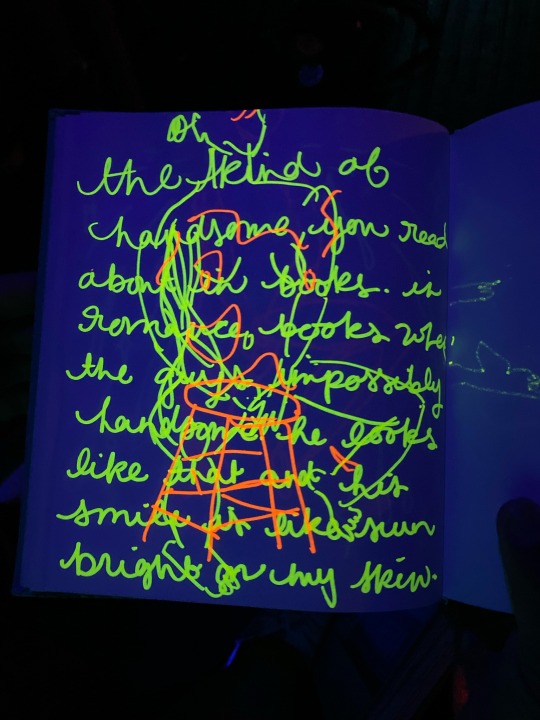 Oh
the kind of
handsome, you read
about in books. in
romance books whe
the guys impossibly
handsome he looks
like that and his
smile is like sun
bright on my skin.